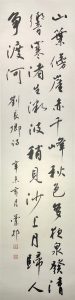 山葉傍崖赤千峰秋色多夜泉發清
響寒渚生微波稍見沙上月歸人
爭渡河 劉長卿詩 辛亥